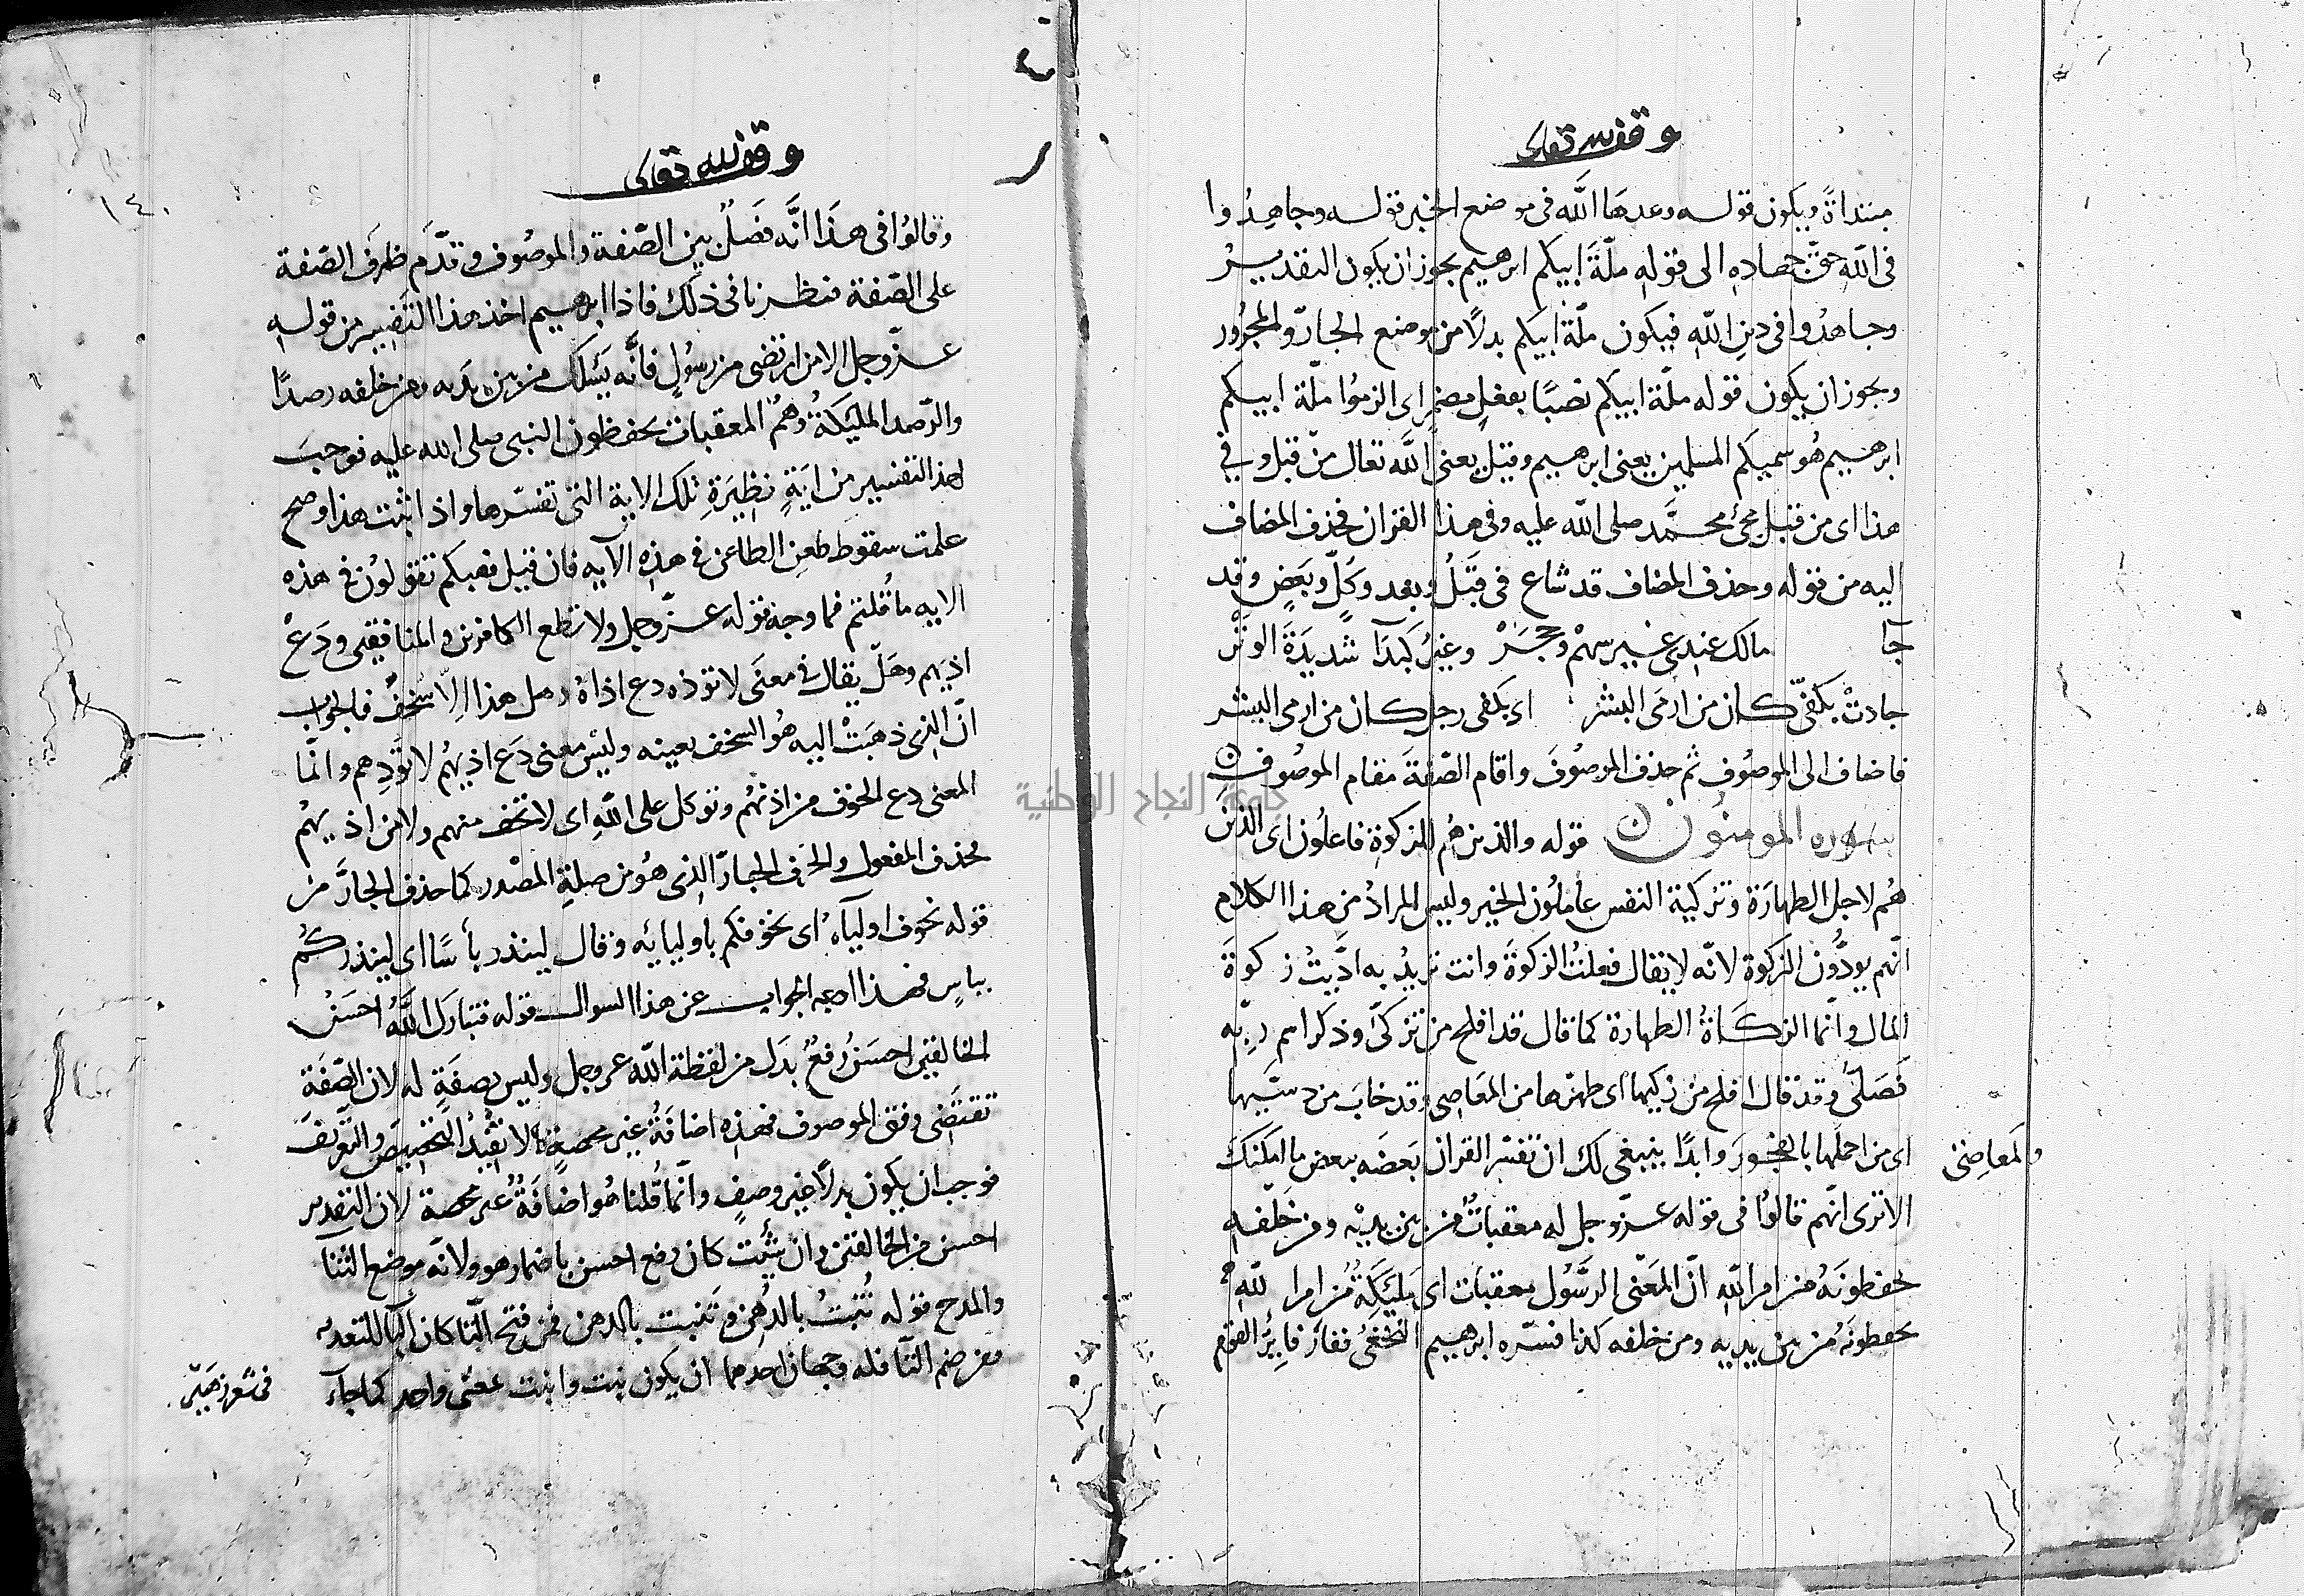 وقف لله تعالى
مبتداةً ويكون قوله وعدها الله في موضع الخبر قوله وجاهِدُوا
في الله حقّ جهاده الى قوله ملّةَ ابيكم ابرهيم يجوز ان يكون التقديرُ
وجاهدُوا في دينِ الله فيكون ملّةَ ابيكم بدلًا من موضع الجارّ والمجرُور
ويجوز ان يكون قوله ملّة ابيكم نصبًا بفعلٍ مضمرٍ اى الزمُوا ملّة ابيكم
ابرهيم هُو سميكم المسلمين يعنى ابرهيم وقيل يعنى الله تعالى من قبل وفي
هذا اى من قبل مجئ محمَّد صلى الله عليه وفي هذا القران فحذف المضاف
اليه من قوله وحذف المضاف قد شاع في قَبْلُ وبعد وكلٍّ وبَعضٍ وقد
جآ مالك عندى غير سهمْ وحجَرْ وغيرُ كبدآ شديدَة الوتَرْ
جادتْ بكفّى كان من ارمَى البشرْ اى بكفى رجل كان من ارمى البشر
فاضاف الى الموصُوف ثم حذف الموصُوفَ واقام الصّفةَ مقام الموصُوف ن
سورة المومنُون ن قوله والذين هُم للزكوة فاعلُون اى الذين
هُم لاجل الطهارَة وتزكية النفس عاملُون الخير وليس المرادُ من هذا الكلام
انّهم يودُّون الزكوة لانّه لا يقال فعلتُ الزكوةَ وانت تريدُ به ادّيتُ زكوةَ
المال وانّما الزكَاةُ الطهارة كما قال قد افلح من تزكىّ وذكر اسم ربّه
فَصَلّى وقد قال افلح من زكيها اى طهّرها من المعَاصِى وقد خابَ من دسّيها
اى من احملها بالفجور وابدًا ينبغى لك ان تفسّر القران بَعضَه ببعض ما امكنك
والمعاصى
الا ترى انّهم قالوُا في قوله عزّ وجل له معقباتٌ من بين يديْه ومن خَلْفه
يحفظونَهُ من امر الله انّ المَعْنى الرسُول معقبات اى مليكَةُ من امر الله
يحفظونَهُ من بين يديه ومن خلفه كذا فسّره ابرهيم النخعىُ فقال قايِلُ القوم
وقف لله تعالى
١٤٠
وقالوُا في هذَا انَّه فَصَلَ بين الصّفة والموصُوف وقدَّم ظرفَ الصّفة
على الصّفة فنظرنا في ذلك فاذا ابرهيم اخذ هذا التفسِير من قوله
عزّ وجل الا من ارتضى من رسُولٍ فانَّه يَسلك من بين يدَيه ومن خلفه رصدًا
والرّصد المليكَةُ وهُم المعقبات يحفظون النبى صلى الله عليه فوجبَ
اخذ التفسير من ايَةٍ نظِيرَةِ تلك الاية التى تفسّرها واذا ثبت هذا وصح
علمت سقوط طعنِ الطاعن في هذِه الآيه فان قيل فعيكم تقولوُن في هذه
الايه ما قُلتم فما وجهُ قوله عزّ وجل ولا تطع الكافرين والمنافقين ودَعْ
اذيهم وهَل يقال في معنَى لا توذه دع اذاهُ وهل هذا الّا سُخفٌ فالجواب
انّ الذى ذهبَتْ اليه هُو السخف بعينه وليْسَ معنى دَع اذيهُم لا تؤذِهم وانّما
المعنى دع الخوف من اذيهُم وتوكل على الله اى لا تخف منهم ولا من اذيهُم
فحذف المفعول والحَرف الجارّ الذى هُو من صلةِ المصْدر كما حذف الجارَّ من
قوله يخوف اوليآءه اى يخوفكم باوليايه وقال لينذر بأسًا اى لينذركُم
بباسٍ فهذا وجه الجواب عن هذا السوال قوله فتبارك اللهُ احسَنُ
الخالقين احسَنُ رفعٌ بدَل من لفظة الله عز وجل وليس بصفَةٍ له لان الصّفَة
تقتضى وفق الموصوف فهذه اضافَةٌ غير محضةٍ لا تفيدُ التخصِيصَ والتّعريفَ
فوجب ان يكون بدلًا غير وصفٍ وانّما قُلنا هُو اضافَةٌ غير محضة لان التقدير
احسن من الخالقين وان شئت كان رفع احسن باضمار هو ولانّه موضع الثنا
والمدح قوله تُنبتُ بالدُهن وتَنبت بالدهن فمن فتح التا كان البآ للتعديه
ومن ضم التآ فله وجهان احدهما ان يكون نبت وانبت بمعنى واحد كما جآء
في شعر زهيَرْ